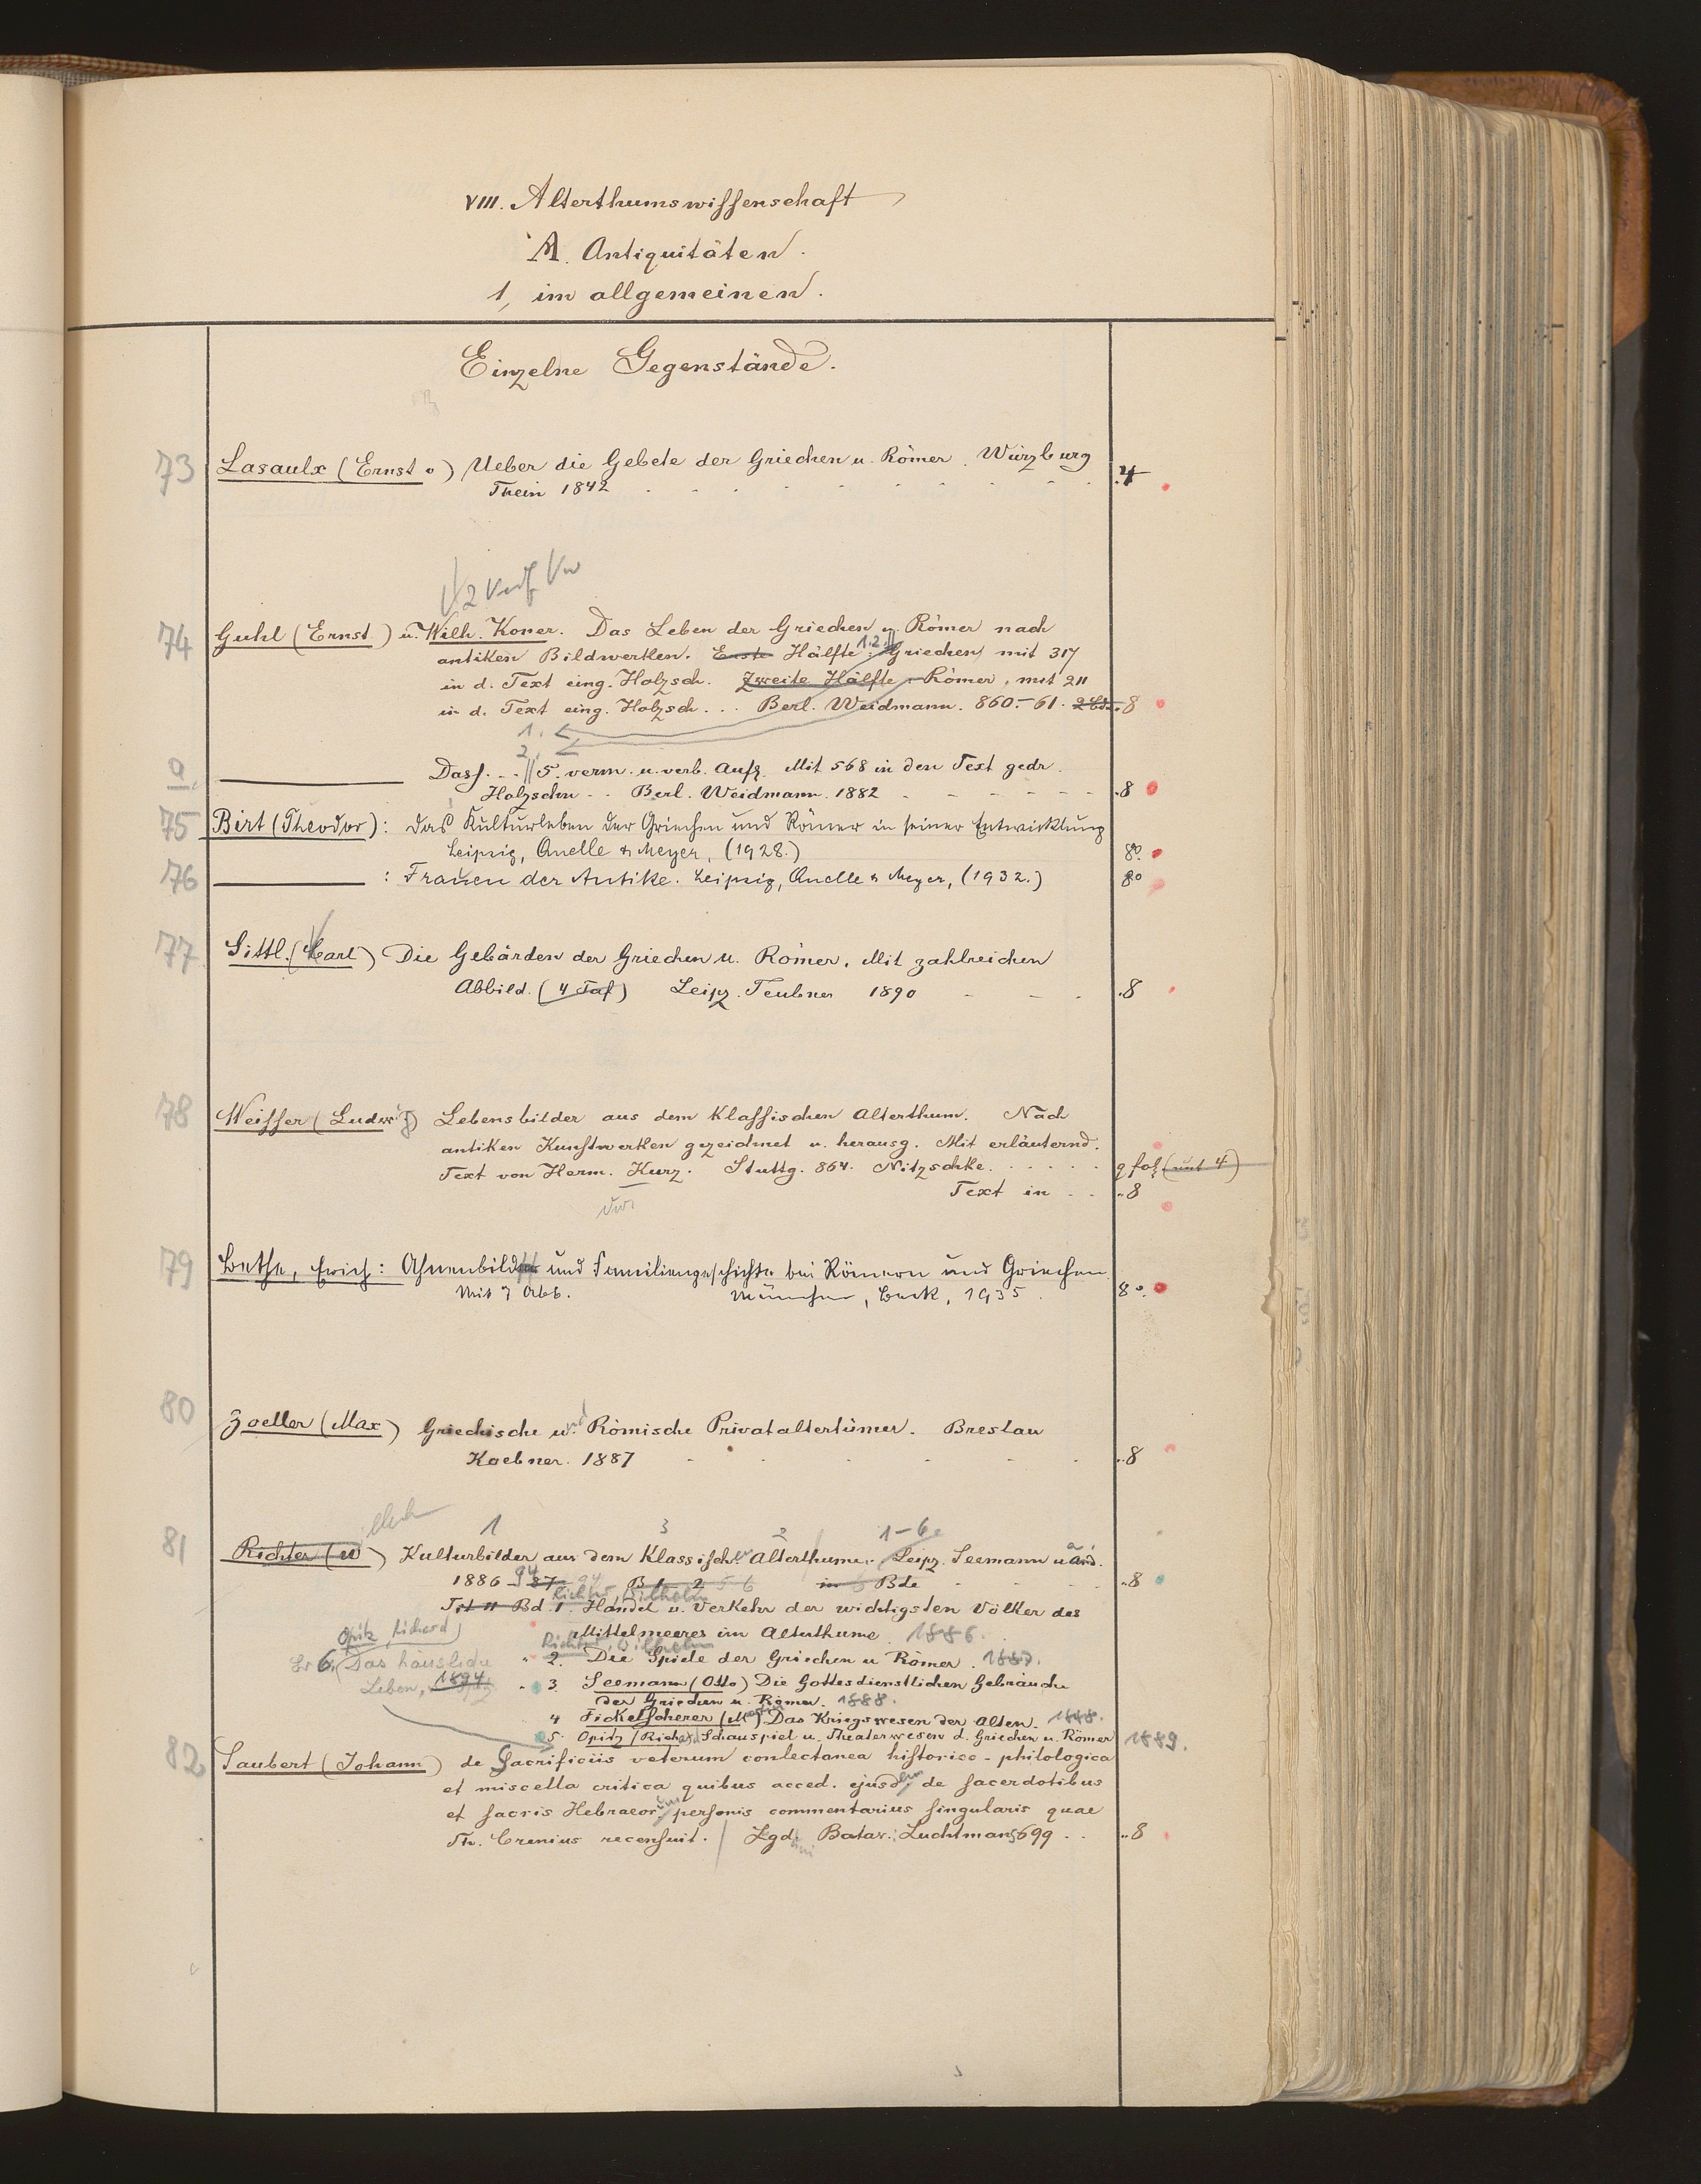 VIII. Alterthumswissenschaft
A. Antiquitäten.
1, im allgemeinen.
Einzelne Gegenstände.
73 Lasaulx (Ernst v) Ueber die Gebete der Griechen u. Römer. Würzburg
Thein 1842 4
74 Guhl (Ernst) u. Wilh. Koner. Das Leben der Griechen u. Römer nach
antiken Bildwerken. Erste Hälfte: 1.2. Griechen, mit 317
in d. Text eing. Holzsch. Zweite Hälfte: Römer, mit 211
in d. Text eing. Holzsch... Berl. Weidmann. 860-61. 2 Bde. 8
1.
2.
a. Dass. .. 5. verm. u. verb. Aufl. Mit 568 in den Text gedr.
Holzschn .. Berl. Weidmann. 1882 8
75 Birt (Theodor): Das Kulturleben der Griechen und Römer in seiner Entwicklung
Leipzig, Quelle & Meyer, (1928.) 8°
76 : Frauen der Antike. Leipzig, Quelle & Meyer, (1932.) 8°
77 Sittl. (Carl) Die Gebärden der Griechen u. Römer. Mit zahlreichen
Abbild. (4 Taf) Leipz. Teubner 1890 8
78 Weisser (Ludwig) Lebensbilder aus dem klassischen Alterthum. Nach
antiken Kunstwerken gezeichnet u. herausg. Mit erläuternd.
Text von Herm. Kurz. Stuttg. 864. Nitzschke. q fol. (mit 4)
Text in .. 8
79 Bethe, Erich: Ahnenbild und Familiengeschichte bei Römern und Griechen
Mit 7 Abb. München, Beck, 1935. 8°.
80 Zoeller (Max) Griechische und Römische Privataltertümer. Breslau
Koebner. 1887 8
1 3 2 1-6
81 Richter (W) Kulturbilder aus dem Klassischen Alterthume. Leipz. Seemann u. and.
1886-87 94 B 1-2 5 6 in 6 Bde 8
Richter, Wilhelm
Bd. 1. Handel u. Verkehr der wichtigsten Völker des
Mittelmeeres im Alterthume. 1886.
Opitz, Richard
Richter, Wilhelm
6. Das häusliche
2. Die Spiele der Griechen u Römer. 1887.
Leben, 1894.
3. Seemann (Otto) Die Gottesdienstlichen Gebräuche
der Griechen u. Römer. 1888.
4 Fickelscherer (Martin) Das Kriegswesen der Alten. 1888.
5. Opitz (Richard) Schauspiel u. Theaterwesen d. Griechen u. Römer 1889.
82 Saubert (Johann) de Sacrificiis veterum conlectanea historico-philologica
et miscella critica quibus acced. ejusdem de sacerdotibus
et sacris Hebraeorum personis commentarius singularis quae
Th. Crenius recensuit. Lgd. Batav. Luchtmans 699 .. 8